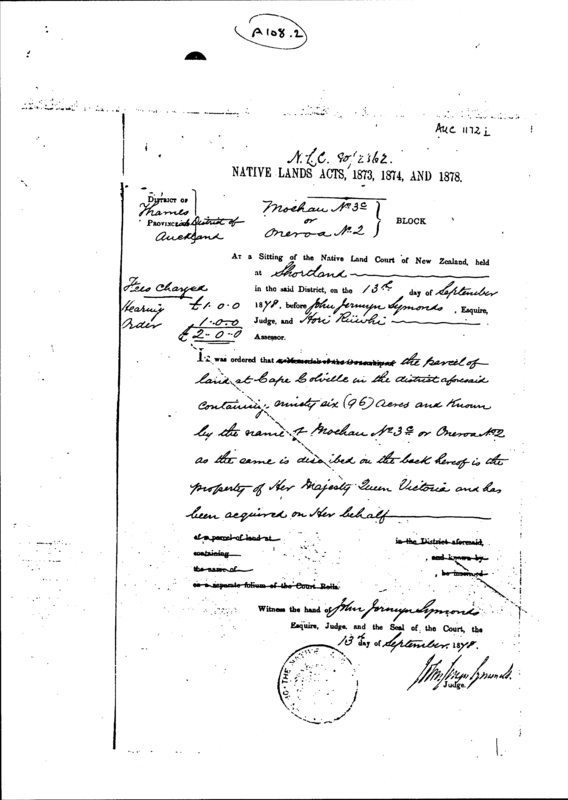 A108.2
AUC 1172 i
N.L.C. 80/2362.
NATIVE LANDS ACTS, 1873, 1874, AND 1878.
DISTRICT OF
Thames
PROVINCIAL District of
Auckland
Moehau No 3c
or
Oneroa No 2
BLOCK
AT a Sitting of the Native Land Court of New Zealand, held
at Shortland
in the said District, on the 13th day of September
1878, before John Jermyn Symonds, Esquire,
Judge, and Hori
Assessor.
Fees Charged
Hearing £1.0.0
Order 1.0.0
£2-0-0
It was ordered that a Memorial of the Ownership of the parcel of
land at Cape Colville in the district aforesaid
containing ninety six (96) Acres and Known
by the name of Moehau No 3c or Oneroa No 2
as the same is described on the back hereof is the
property of Her Majesty Queen Victoria and has
been acquired on Her behalf
of a parcel of land at in the District aforesaid,
containing , and known by
the name of , be inserted
on a separate folium of the Court Rolls.
Witness the hand of John Jermyn Symonds
Esquire, Judge, and the Seal of the Court, the
13th day of September, 1878.
John Jermyn Symonds.
Judge.
OF THE NATIVE